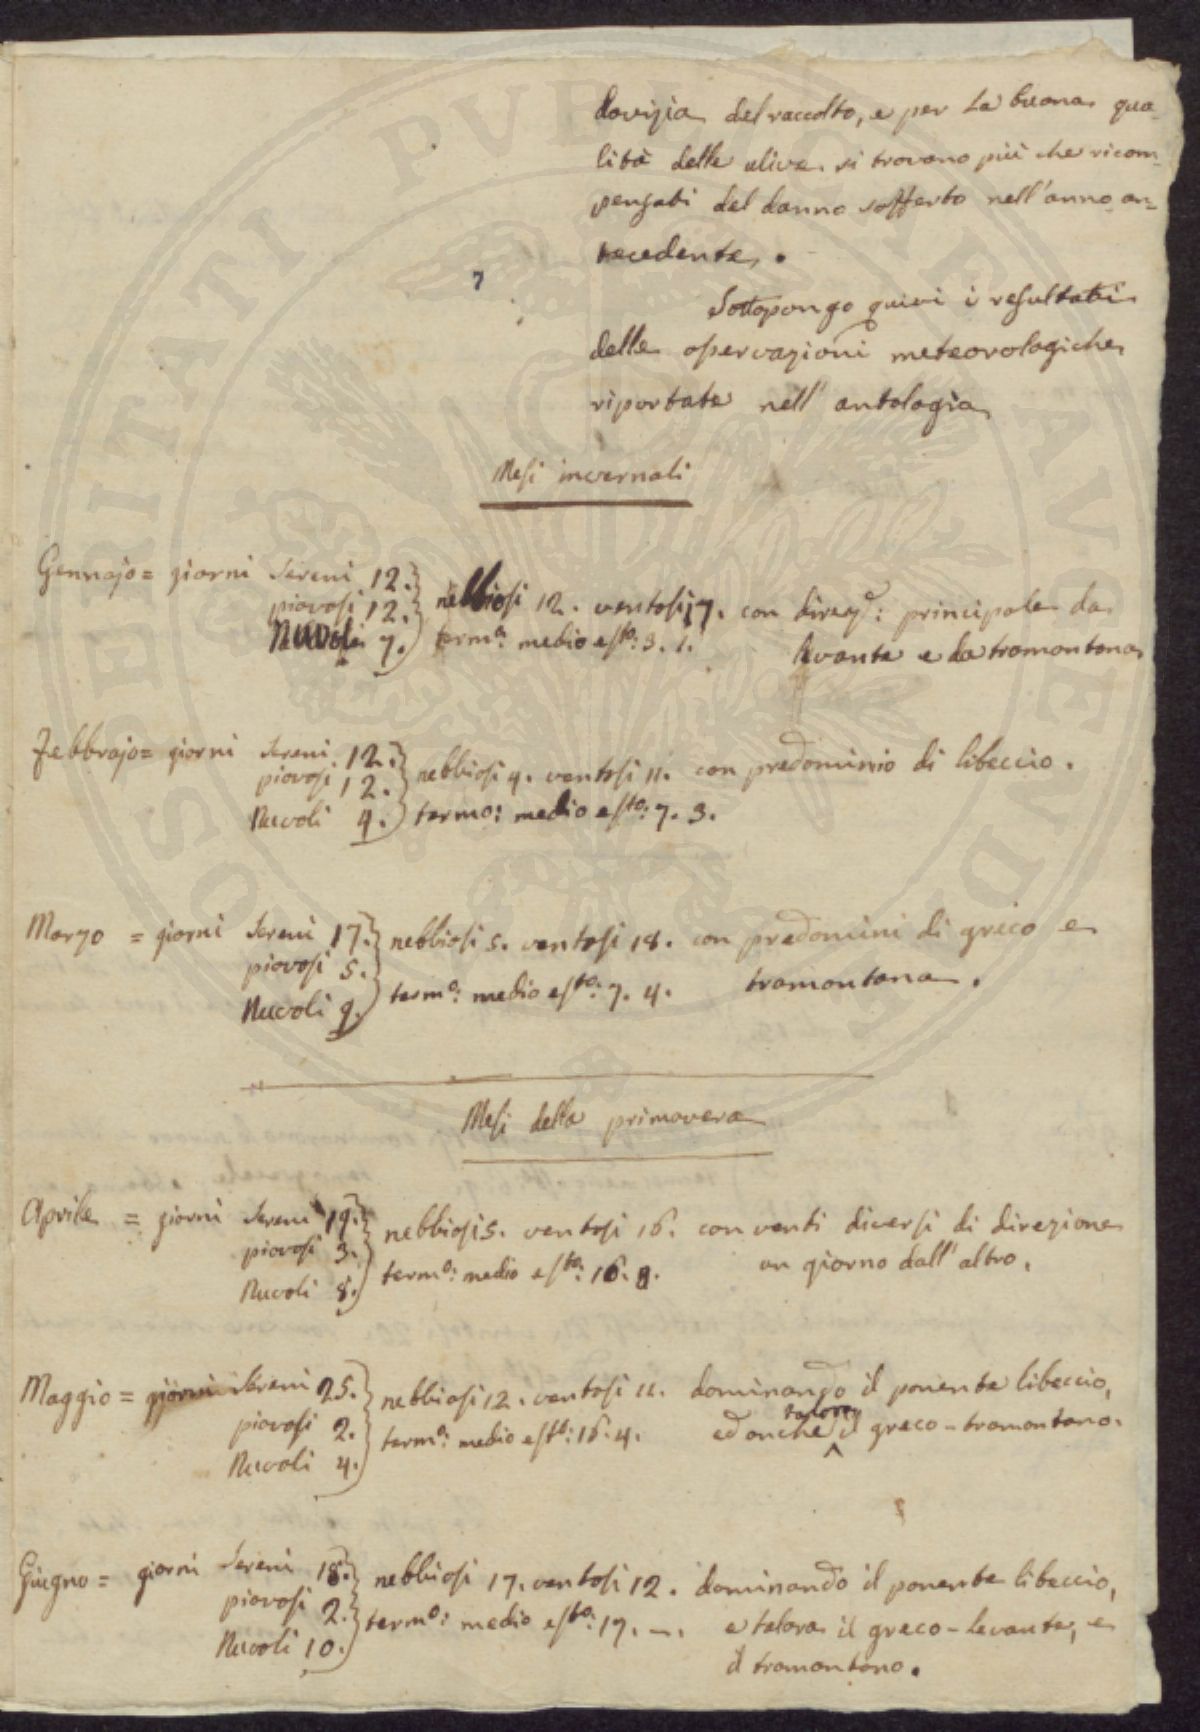 dovizia del raccolto, e per la buona qua-
lità delle ulive si trovano più che ricom-
pensati del danno sofferto nell'anno an-
tecedente.
Sottopongo quivi i resultati
delle osservazioni meteorologiche
riportate nell'antologia
Mesi invernali
Gennajo = giorni Sereni 12.
piovosi 12.
Nuvoli 7.
nebbiosi 12. ventosi 17. con direz.e: principale da
term.o: medio est.o: 3. 1. levante e da tramontana
Febbrajo = giorni Sereni 12.
piovosi 12.
Nuvoli 4.
nebbiosi 4. ventosi 11. con predominio di libeccio.
termo: medio est.o: 7. 3.
Marzo = giorni Sereni 17.
piovosi 5.
Nuvoli 9.
nebbiosi 5. ventosi 18. con predomini di greco e
term.o: medio est.o: 7. 4. tramontana.
Mesi della primavera
Aprile = giorni Sereni 19.
piovosi 3.
Nuvoli 8.
nebbiosi 5. ventosi 16. con venti diversi di direzione
term.o: medio est.o: 16. 8. un giorno dall'altro.
Maggio = giorni Sereni 25.
piovosi 2.
Nuvoli 4.
nebbiosi 12. ventosi 11. dominando il ponente libeccio,
term.o: medio est.o: 16. 4. ed anche talora il greco-tramontano.
Giugno = giorni Sereni 18.
piovosi 2.
Nuvoli 10.
nebbiosi 17. ventosi 12. dominando il ponente libeccio,
term.o: medio est.o: 17. –. e talora il greco-levante, e
il tramontano.